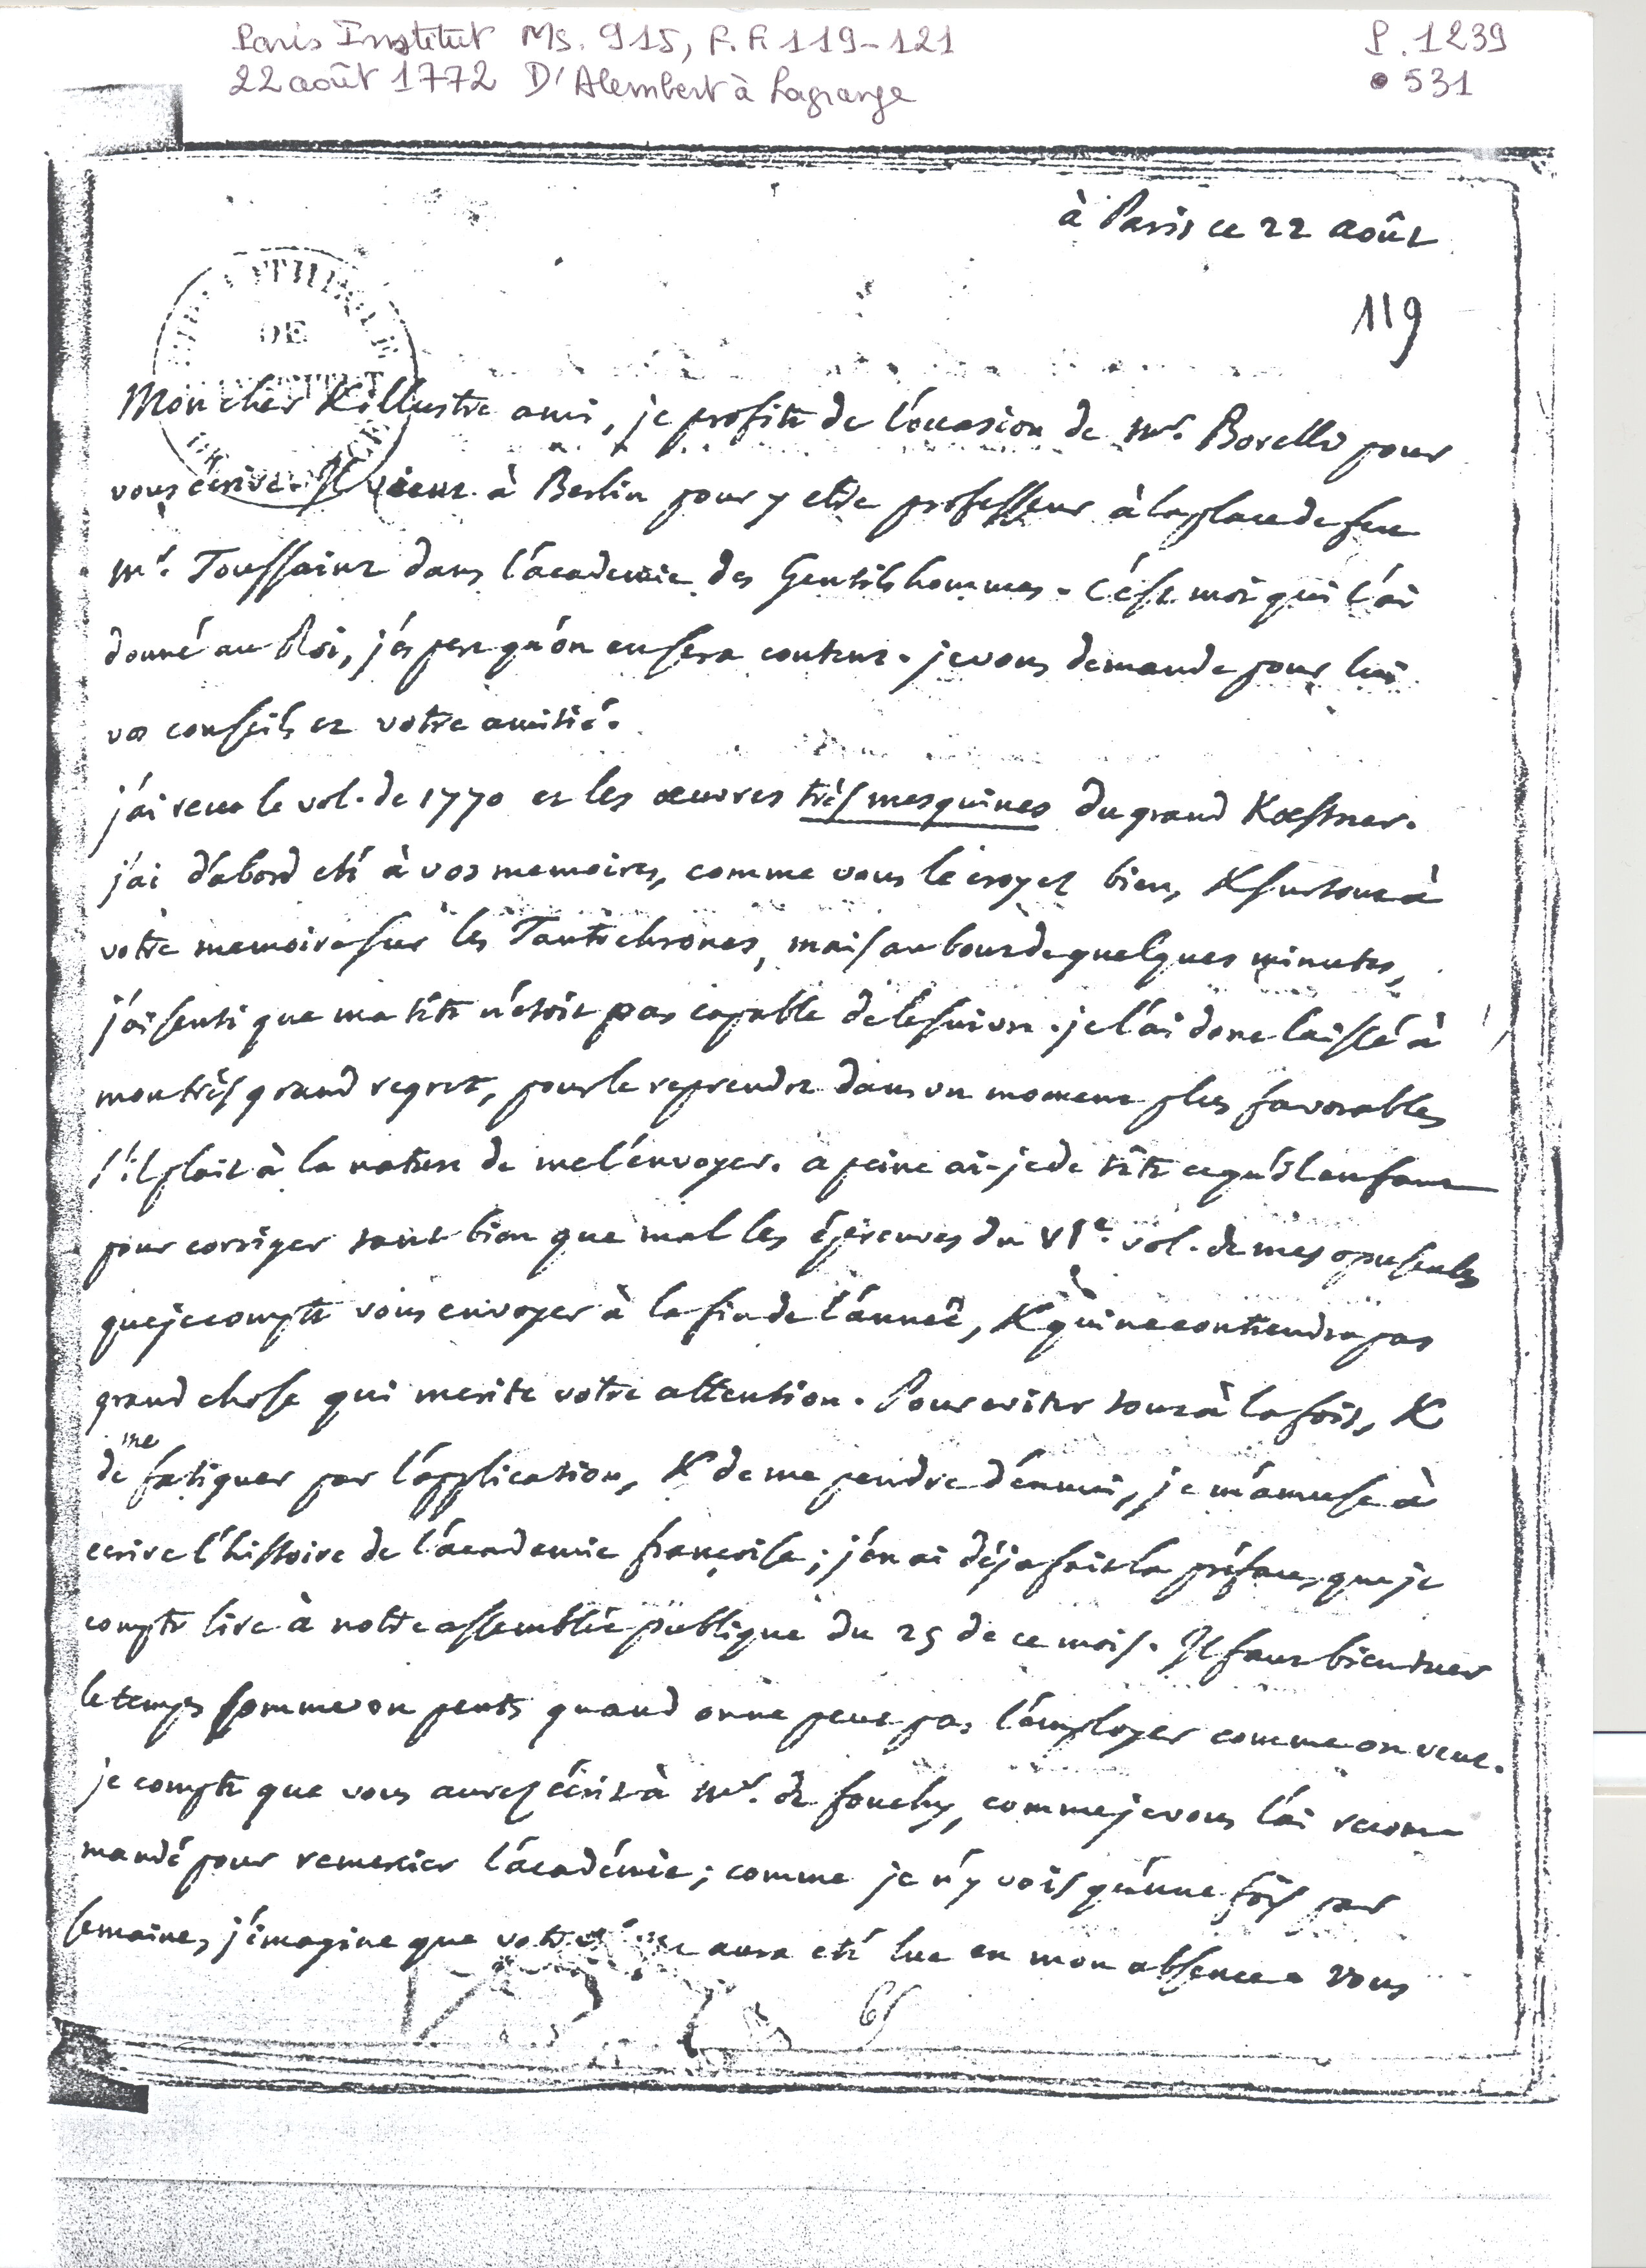 Paris Institut Ms. 915, F. F. 119-121
22 août 1772 D'Alembert à Lagrange
P. 1239
531
à Paris ce 22 août
119
DE
Mon cher & illustre ami, je profite de l'occasion de Mr. Borelli pour
vous écrire. Il vient à Berlin pour y etre professeur à la place de feu
Mr. Toussaint dans l'academie des Gentilshommes. C'est moi qui l'ai
donné au Roi, j'espere qu'on en sera content. je vous demande pour lui
vos conseils et votre amitié.
j'ai recu le vol. de 1770 et les œuvres très mesquines du grand Kœstner.
j'ai d'abord eté à vos memoires, comme vous le croyez bien, & surtout à
votre memoire sur les Tautochrones, mais au bout de quelques minutes,
j'ai senti que ma tête n'étoit pas capable de le suivre. je l'ai donc laissé à
mon très grand regret, pour le reprendre dans un moment plus favorable
s'il plait à la nature de me l'envoyer. a peine ai-je de tête ce qu'il en faut
pour corriger tant bien que mal les épreuves du VIe. vol. de mes opuscules
que je compte vous envoyer à la fin de l'année, & qui ne contiendra pas
grand chose qui merite votre attention. Pour eviter tout à la fois, &
de me fatiguer par l'application, & de me pendre d'ennui, je m'amuse à
ecrire l'histoire de l'academie françoise; j'en ai déja fait la préface, que je
compte lire à notre assemblée publique du 25 de ce mois. Il faut bien tuer
le temps comme on peut, quand on ne peut pas l'employer comme on veut.
je compte que vous aurez écrit à Mr. de fouchy, comme je vous l'ai recom-
mandé pour remercier l'académie; comme je n'y vais qu'une fois par
semaine, j'imagine que votre aura eté lue en mon absence. Vous
65